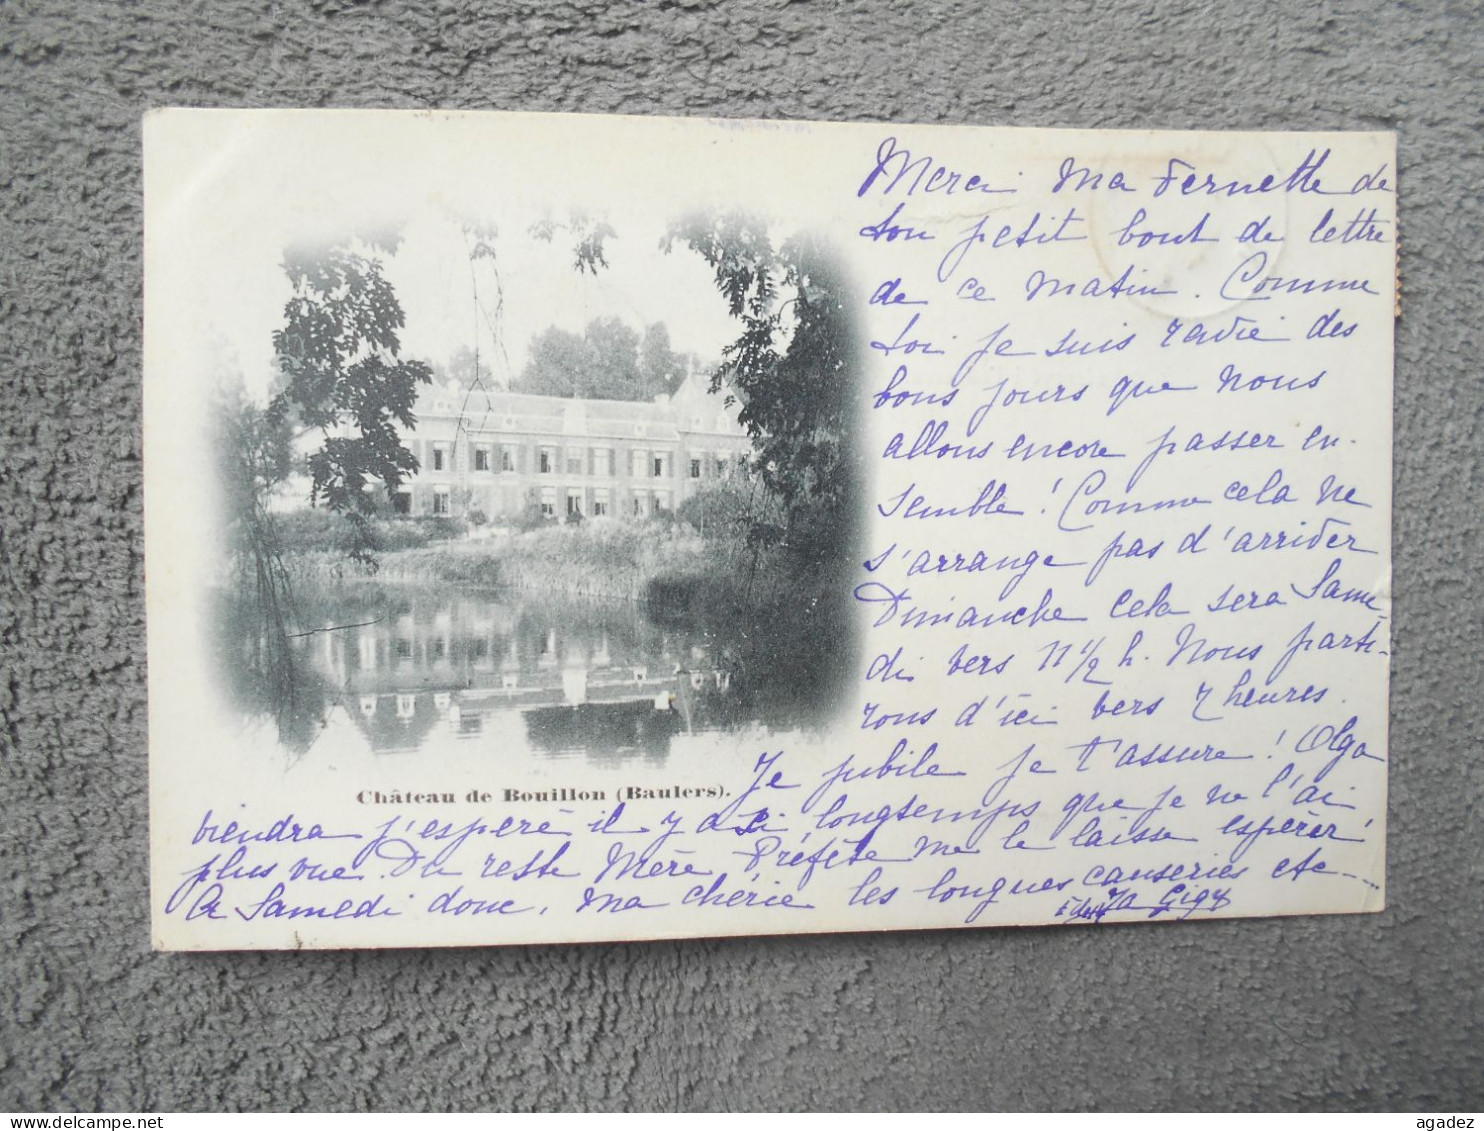 Merci Ma Fernette de
ton petit bout de lettre
de ce matin. Comme
toi je suis ravie des
bons jours que nous
allons encore passer en-
semble! Comme cela ne
s'arrange pas d'arriver
Dimanche cela sera Same-
di vers 11 1/2 h. Nous parti-
rons d'ici vers 7 heures.
Je jubile je t'assure! Olga
Château de Bouillon (Baulers).
viendra j'espère il y a si longtemps que je ne l'ai
plus vue. Du reste Mère Préfète me le laisse espérer
A Samedi donc, ma chérie les longues causeries etc
Ta Gigy
agadez
delcampe.net